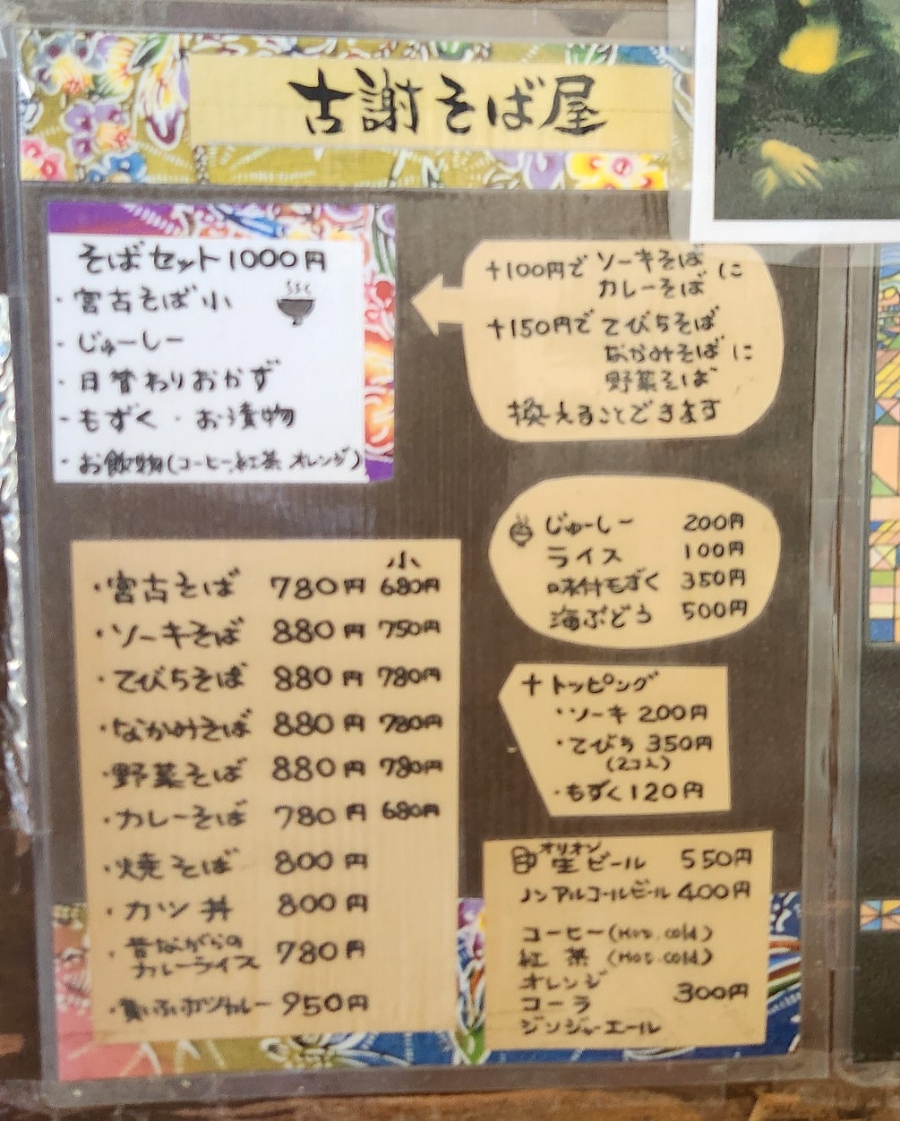 古謝そば屋
そばセット1000円
・宮古そば小
・じゅーしー
・日替わりおかず
・もずく・お漬物
・お飲物(コーヒー、紅茶 オレンジ)
+100円で ソーキそば に
カレーそば
+150円で てびちそば
なかみそば に
野菜そば
換えることできます
小
・宮古そば 780円 680円
・ソーキそば 880円 750円
・てびちそば 880円 780円
・なかみそば 880円 780円
・野菜そば 880円 780円
・カレーそば 780円 680円
・焼そば 800円
・カツ丼 800円
・昔ながらの
カレーライス 780円
カツカレー 950円
じゅーしー 200円
ライス 100円
味付もずく 350円
海ぶどう 500円
+トッピング
・ソーキ 200円
・てびち 350円
(2コ入)
・もずく 120円
オリオン
生ビール 550円
ノンアルコールビール 400円
コーヒー(Hot.cold)
紅茶 (Hot.cold)
オレンジ
コーラ 300円
ジンジャーエール